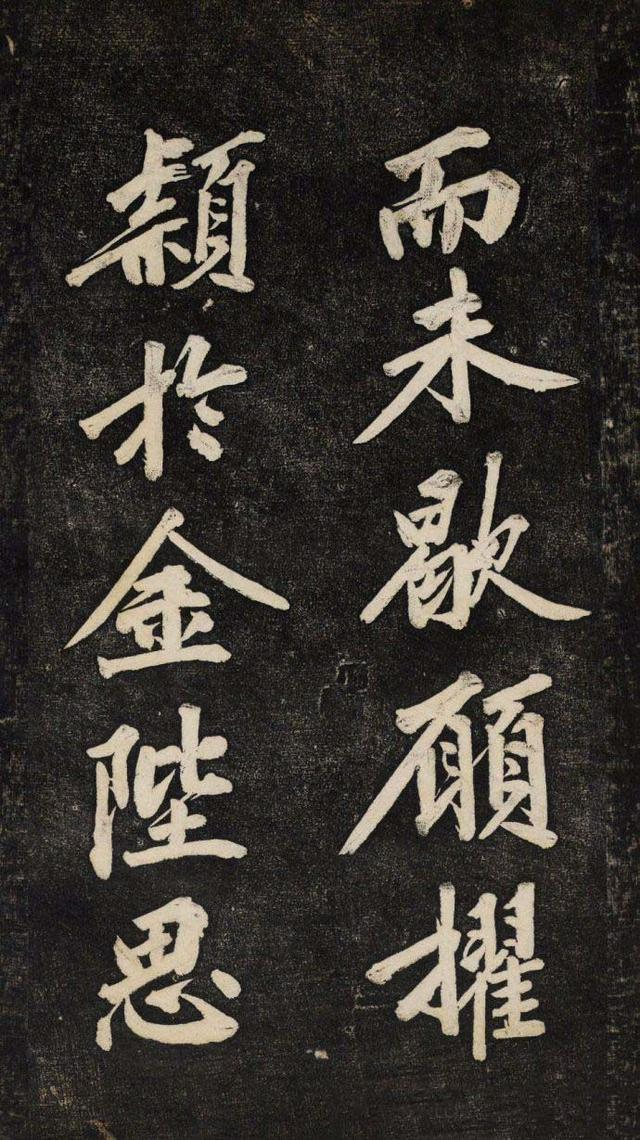 而未歇願擢
穎於金陛思